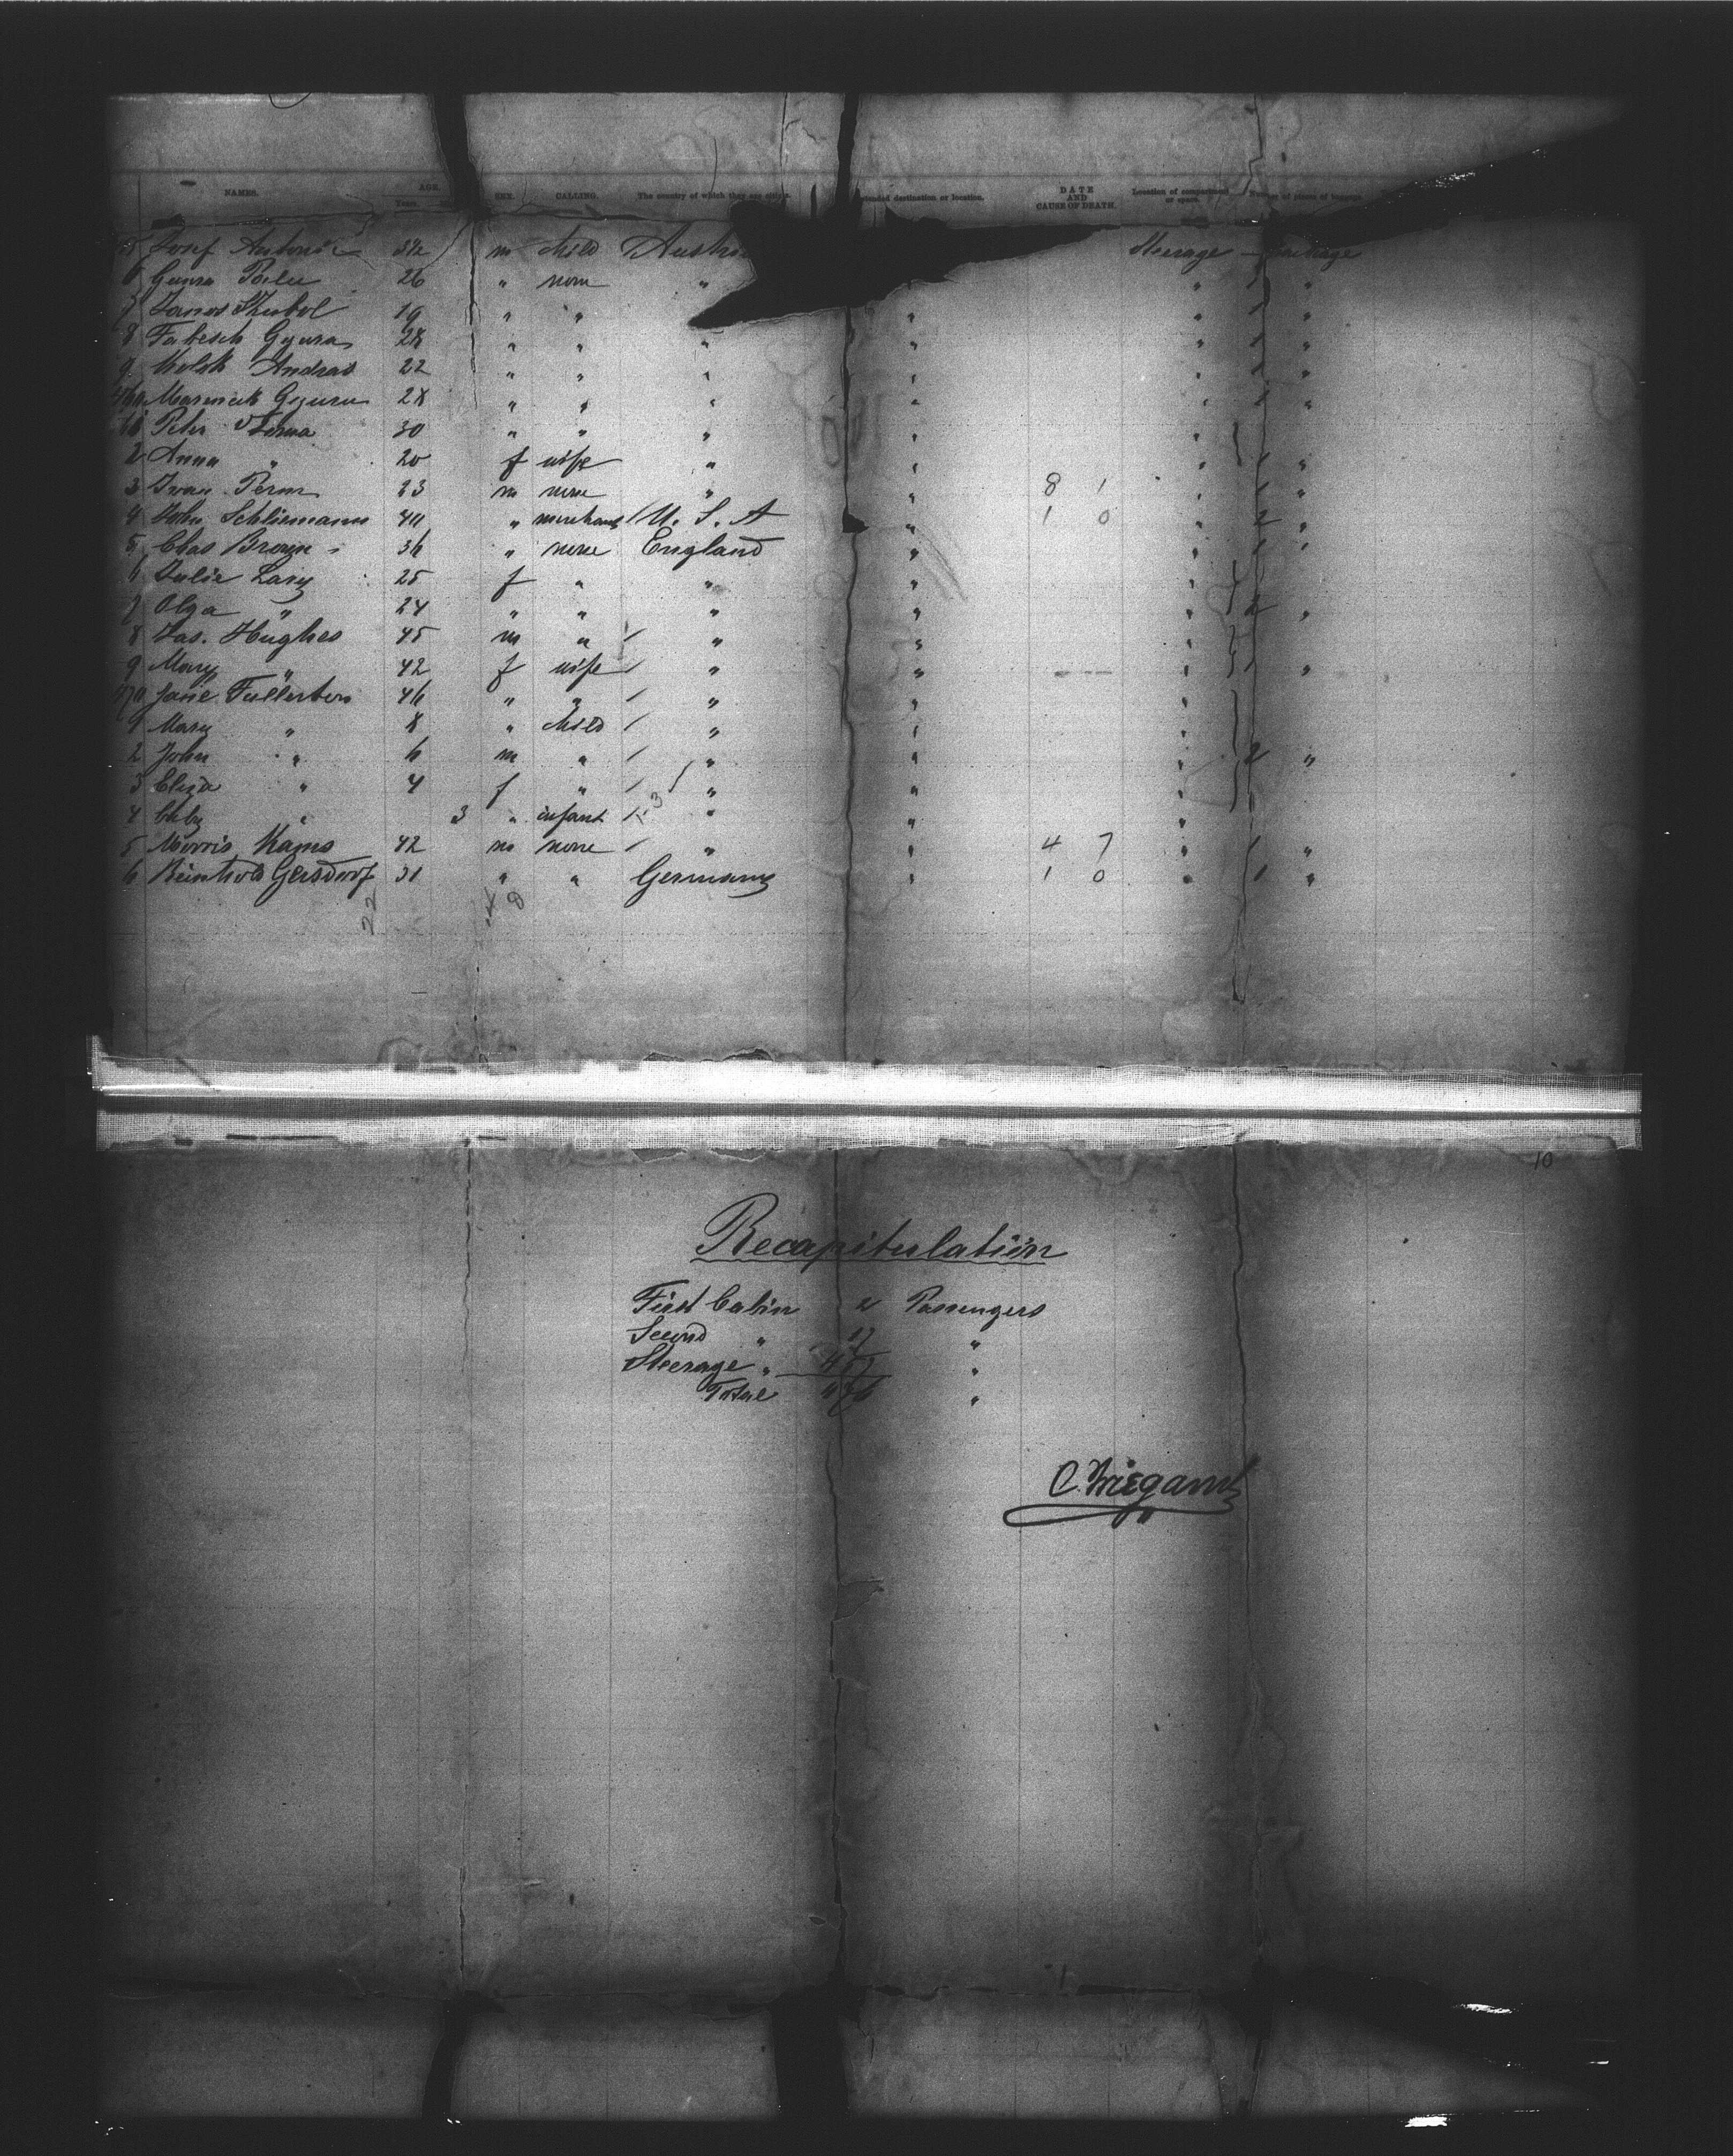 NAMES. AGE. Years. SEX. CALLING. The country of which they are citizens. Intended destination or location. DATE AND CAUSE OF DEATH. Location of compartment or space. Number of pieces of baggage.
5 Josef Antonic 3½ m child Austria Steerage package
6 26 " none " " "
7 Janos 19 " " " " " "
8 Gyura 28 " " " " " "
9 Andras 22 " " " " " "
460 Gyura 28 " " " " " "
61 Peter 30 " " " " "
2 Anna " 20 f wife " " " 1 "
3 Ivan 23 m none " 8 1 " 1 "
4 John Schliemann 40 " merchant U. S. A " 1 0 " 2 "
5 Chas Brown 36 " none England " " 1 "
6 Julie Lary 25 f " " " "
7 Olga " 24 " " " " " 2 "
8 Jas. Hughes 45 m " " " "
9 Mary " 42 f wife " " " 1 "
470 Jane Fullerton 46 " " " " "
1 Mary " 8 " child " " "
2 John " 6 m " " " " 2 "
3 Eliza " 4 f " " " "
4 " 3 " infant " " "
5 Morris Kams 42 m none " " 4 7 " 1 "
6 Reinhold Gersdorf 31 " " Germany " 1 0 " 1 "
22
10
Recapitulation
First Cabin 2 Passengers
Second " 17 "
Steerage " 457 "
Total 476 "
C. Wiegand